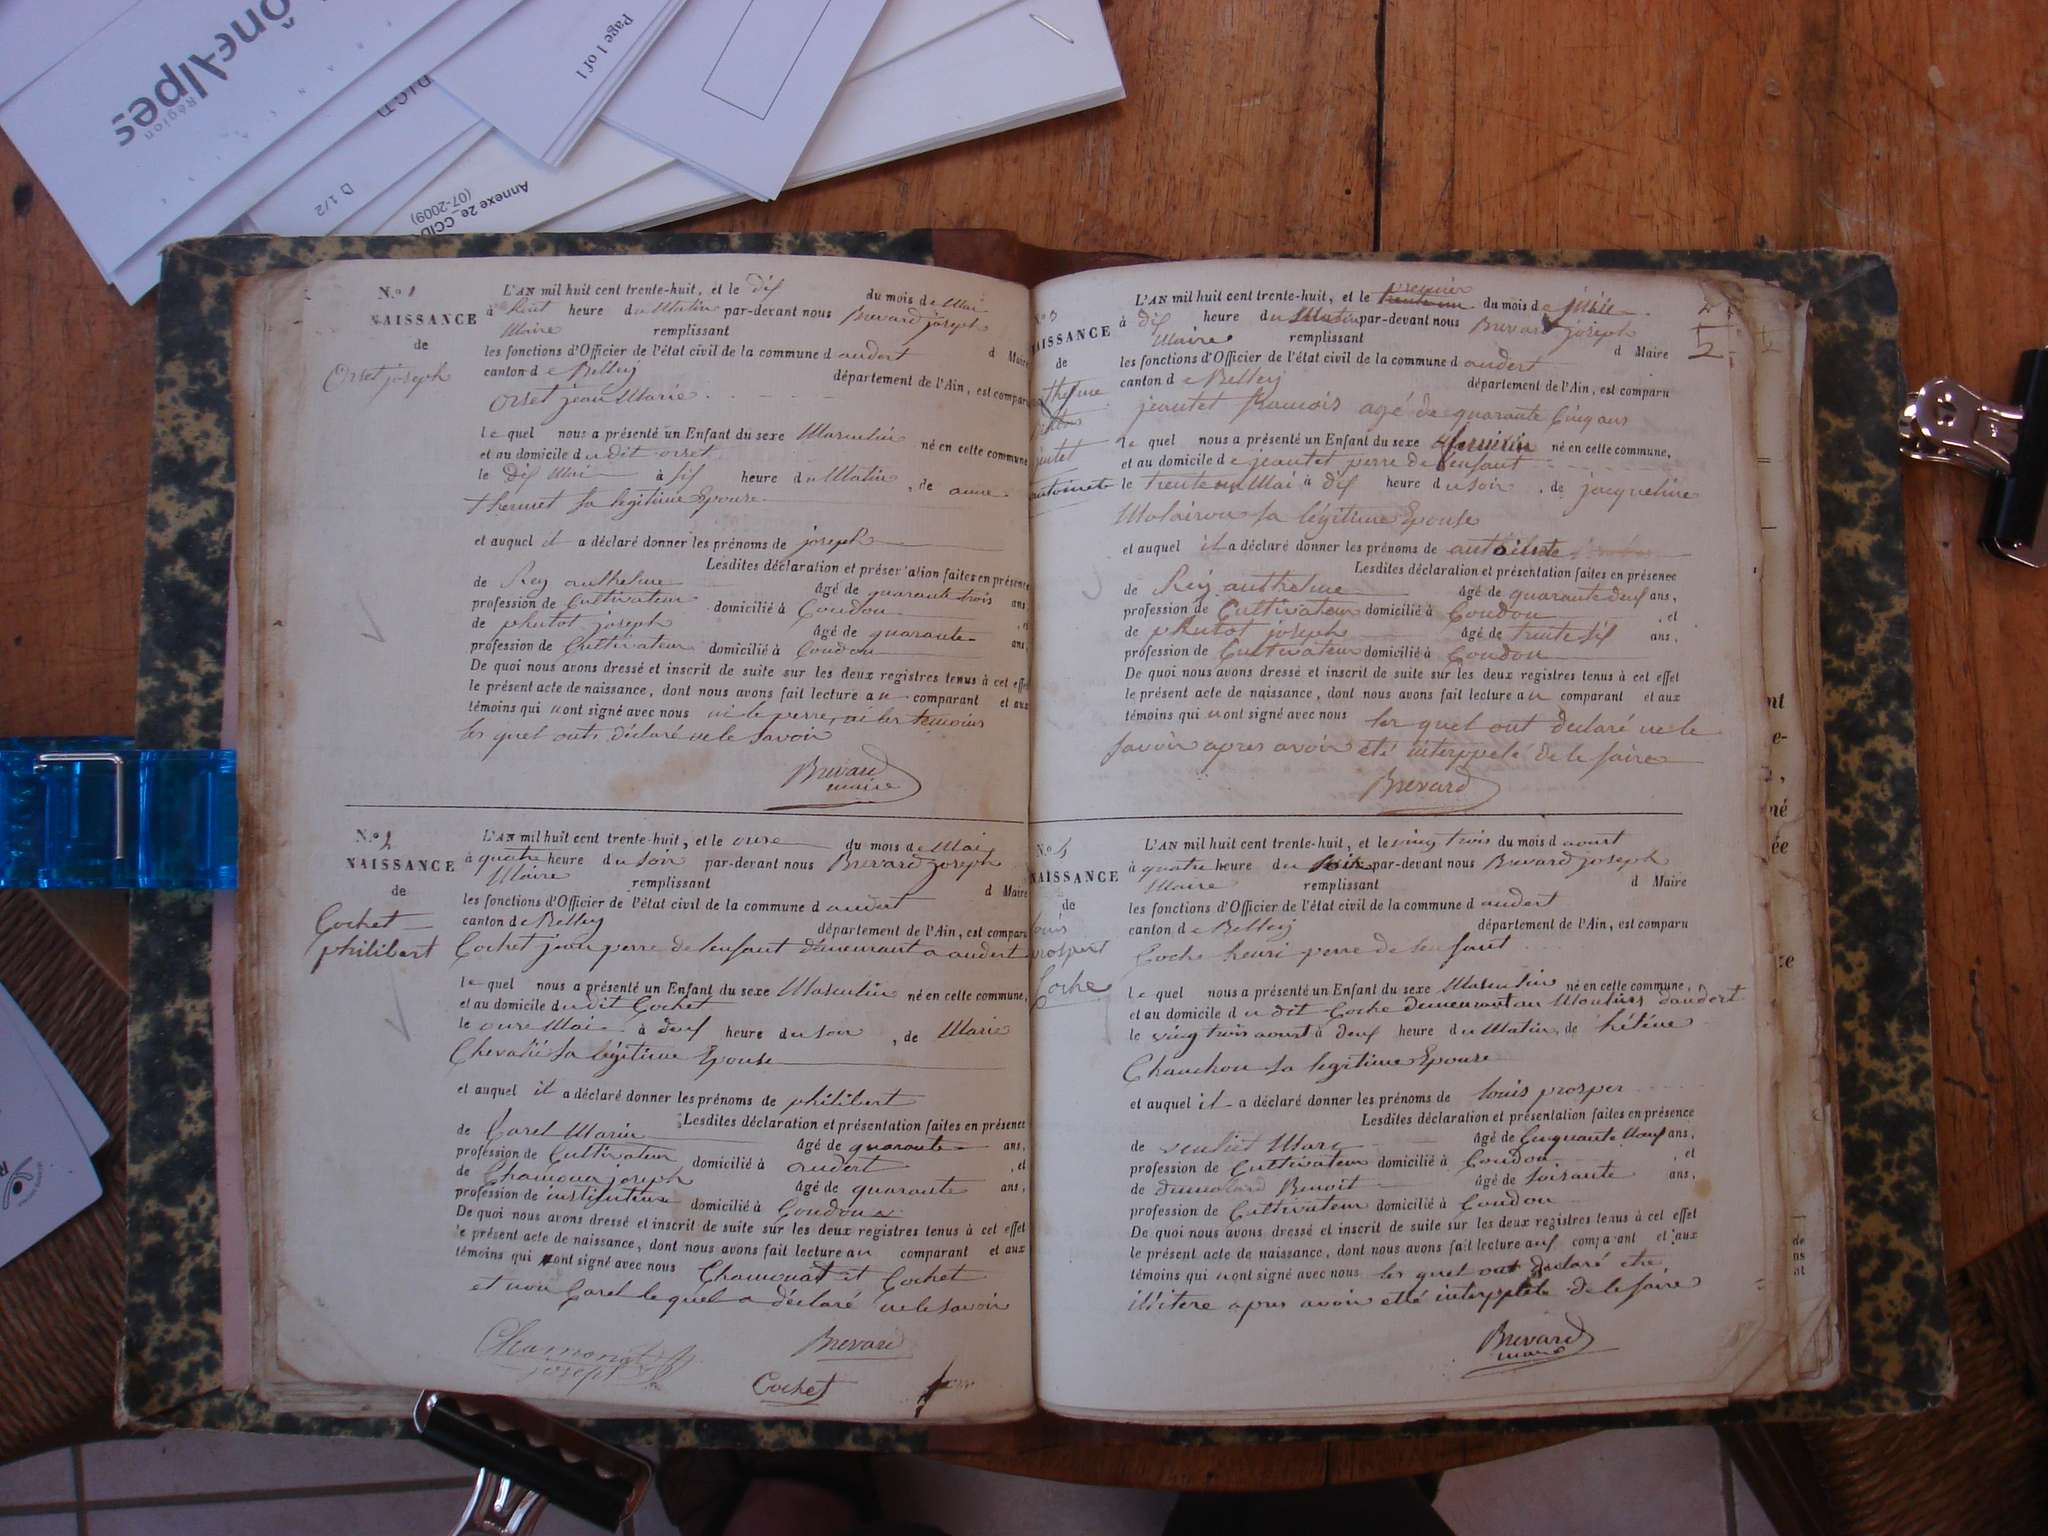 Rhône-Alpes
Région
Page 1 of 1
D 1/2
Annexe 2e_CCID
(07-2009)
N.o 1
NAISSANCE
de
Orset joseph
L'AN mil huit cent trente-huit, et le dix du mois de Mai
à huit heure du Matin par-devant nous Brevard joseph
Maire remplissant d Maire
les fonctions d'Officier de l'état civil de la commune d andert
canton de Belley département de l'Ain, est comparu
Orset jean Marie
le quel nous a présenté un Enfant du sexe Masculin né en cette commune
et au domicile du dit orset
le Dix Mai à six heure du Matin, de anne
Thermet sa legitime Epouse
et auquel il a déclaré donner les prénoms de joseph
Lesdites déclaration et présentation faites en présence
de Rey anthelme âgé de quarante trois ans
profession de Cultivateur domicilié à Condon, et
de phlutot joseph âgé de quarante ans,
profession de Cultivateur domicilié à Condon
De quoi nous avons dressé et inscrit de suite sur les deux registres tenus à cet effet
le présent acte de naissance, dont nous avons fait lecture au comparant et aux
témoins qui nont signé avec nous ni le perre, ni les temoins
les quel onts déclaré ne le savoir
Brevard
maire
N.o 2
NAISSANCE
de
Cochet
philibert
L'AN mil huit cent trente-huit, et le onze du mois de Mai
à quatre heure du soir par-devant nous Brevard joseph
Maire remplissant d Maire
les fonctions d'Officier de l'état civil de la commune d andert
canton de Belley département de l'Ain, est comparu
Cochet jean perre de lenfant demeurant a andert
le quel nous a présenté un Enfant du sexe Masculin né en cette commune,
et au domicile du dit Cochet
le onze Mai à deux heure du soir, de Marie
Chevalié sa légitime Epouse
et auquel il a déclaré donner les prénoms de philibert
Lesdites déclaration et présentation faites en présence
de Carel Marin âgé de quarante ans,
profession de Cultivateur domicilié à andert, et
de Chamona joseph âgé de quarante ans,
profession de instituteur domicilié à Condon
De quoi nous avons dressé et inscrit de suite sur les deux registres tenus à cet effet
le présent acte de naissance, dont nous avons fait lecture au comparant et aux
témoins qui ont signé avec nous Chamonat et Cochet
et non Carel le quel a déclaré ne le savoir
Chamonat Brevard
joseph
Cochet
N.o 3
NAISSANCE
de
antoinete
L'AN mil huit cent trente-huit, et le trente un premier du mois de juin
à dix heure du Matin par-devant nous Brevard joseph
Maire remplissant d Maire
les fonctions d'Officier de l'état civil de la commune d andert
canton de Belley département de l'Ain, est comparu
jeantet francois agé de quarante Cinq ans
le quel nous a présenté un Enfant du sexe feminin né en cette commune,
et au domicile de jeantet perre de l'enfant
le trente un Mai à dix heure du soir, de jacqueline
Molairon sa légitime Epouse
et auquel il a déclaré donner les prénoms de antoinete
Lesdites déclaration et présentation faites en présence
de Rey anthelme âgé de quarante deux ans,
profession de Cultivateur domicilié à Condon, et
de phlutot joseph âgé de trente six ans,
profession de Cultivateur domicilié à Condon
De quoi nous avons dressé et inscrit de suite sur les deux registres tenus à cet effet
le présent acte de naissance, dont nous avons fait lecture au comparant et aux
témoins qui nont signé avec nous les quel ont declaré ne le
savoir apres avoir été interppelé de le faire
Brevard
NAISSANCE
de
louis
prospert
Coche
L'AN mil huit cent trente-huit, et le vingt trois du mois d aoust
à quatre heure du soir par-devant nous Brevard joseph
Maire remplissant d Maire
les fonctions d'Officier de l'état civil de la commune d andert
canton de Belley département de l'Ain, est comparu
Coche henri perre de lenfant
le quel nous a présenté un Enfant du sexe Masculin né en cette commune,
et au domicile du dit Coche demeurant au Moulins dandert
le vingt trois aoust à deux heure du Matin, de hélène
Chanchon sa legitime Epouse
et auquel il a déclaré donner les prénoms de louis prosper
Lesdites déclaration et présentation faites en présence
de Marc âgé de Cinquante Neuf ans,
profession de Cultivateur domicilié à Condon, et
de dumolard Benoit âgé de soixante ans,
profession de Cultivateur domicilié à Condon
De quoi nous avons dressé et inscrit de suite sur les deux registres tenus à cet effet
le présent acte de naissance, dont nous avons fait lecture aux comparant et aux
témoins qui nont signé avec nous les quel ont declaré etre
ilitere apres avoir etté interppelé de le faire
Brevard
maire